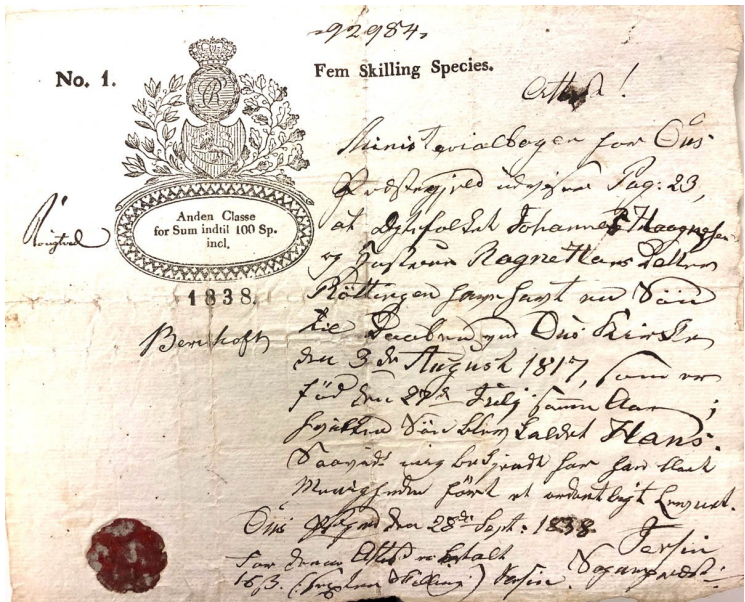 92984.
No. 1.
Fem Skilling Species.
CR
Attest!
Anden Classe
for Sum indtil 100 Sp.
incl.
1838.
Ministerialbogen for Ous
Præstegjeld udviser Pag: 23,
at Ægtefolket Johannes Haagensen
og Hustrue Ragne Hans Datter
Röttingen have havt en Sön
til Daaben i Ous Kirke
den 3de August 1817, som er
föd den 27de Julj samme Aar;
hvilken Sön blev kaldet Hans.
Saavidt mig bekjendt har han
Menigheden fört et ordentligt Levnet.
Ous Præstegaard den 28de Sept: 1838.
For denne Attest er betalt
16 ß. (Sexten Skilling)
Sogneprest.